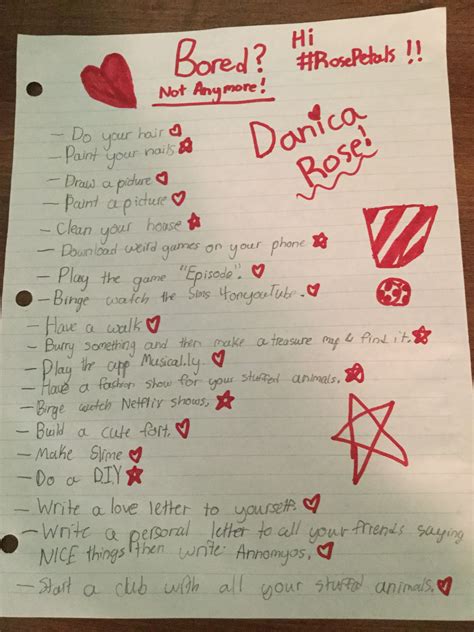 Bored?
Not Anymore!
Hi
#RosePetals !!
Danica
Rose!
- Do your hair
- Paint your nails
- Draw a picture
- Paint a picture
- Clean your house
- Download weird games on your phone
- Play the game "Episode".
- Binge watch the Sims 4 on YouTube.
- Have a walk
- Burry something and then make a treasure map & find it.
- Play the app Musical.ly.
- Have a fashion show for your stuffed animals.
- Binge watch Netflix shows.
- Build a cute fort.
- Make Slime
- Do a D.I.Y
- Write a love letter to yourself.
- Write a personal letter to all your friends saying
NICE things then write: Annomyos.
- Start a club with all your stuffed animals.